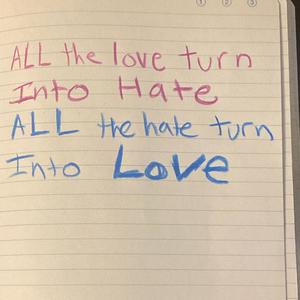 ① ② ③
ALL the love turn
Into Hate
ALL the hate turn
Into Love